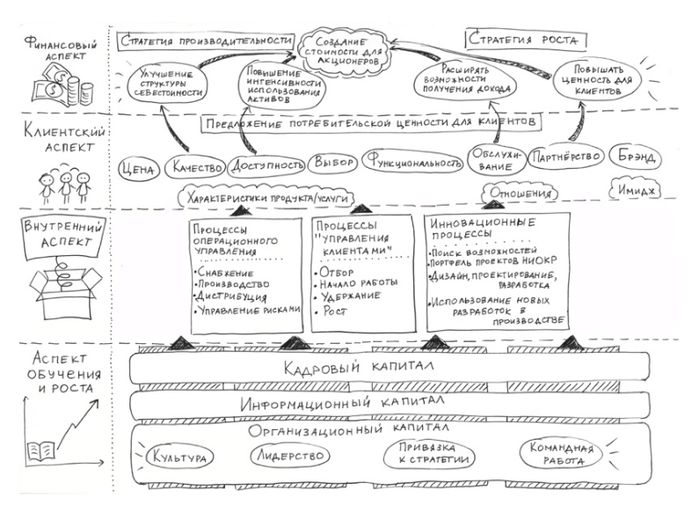 Финансовый
аспект
Стратегия производительности
Создание
стоимости для
акционеров
Стратегия роста
Улучшение
структуры
себестоимости
Повышение
интенсивности
использования
активов
Расширять
возможности
получения дохода
Повышать
ценность для
клиентов
Клиентский
аспект
Предложение потребительской ценности для клиентов
Цена
Качество
Доступность
Выбор
Функциональность
Обслужи-
вание
Партнёрство
Брэнд
Характеристики продукта/услуги
Отношения
Имидж
Внутренний
аспект
Процессы
операционного
управления
• Снабжение
• Производство
• Дистрибуция
• Управление рисками
Процессы
"управления
клиентами"
• Отбор
• Начало работы
• Удержание
• Рост
Инновационные
процессы
• Поиск возможностей
• Портфель проектов НИОКР
• Дизайн, проектирование,
разработка
• Использование новых
разработок в
производстве
Аспект
обучения
и роста
Кадровый капитал
Информационный капитал
Организационный капитал
Культура
Лидерство
Привязка
к стратегии
Командная
работа